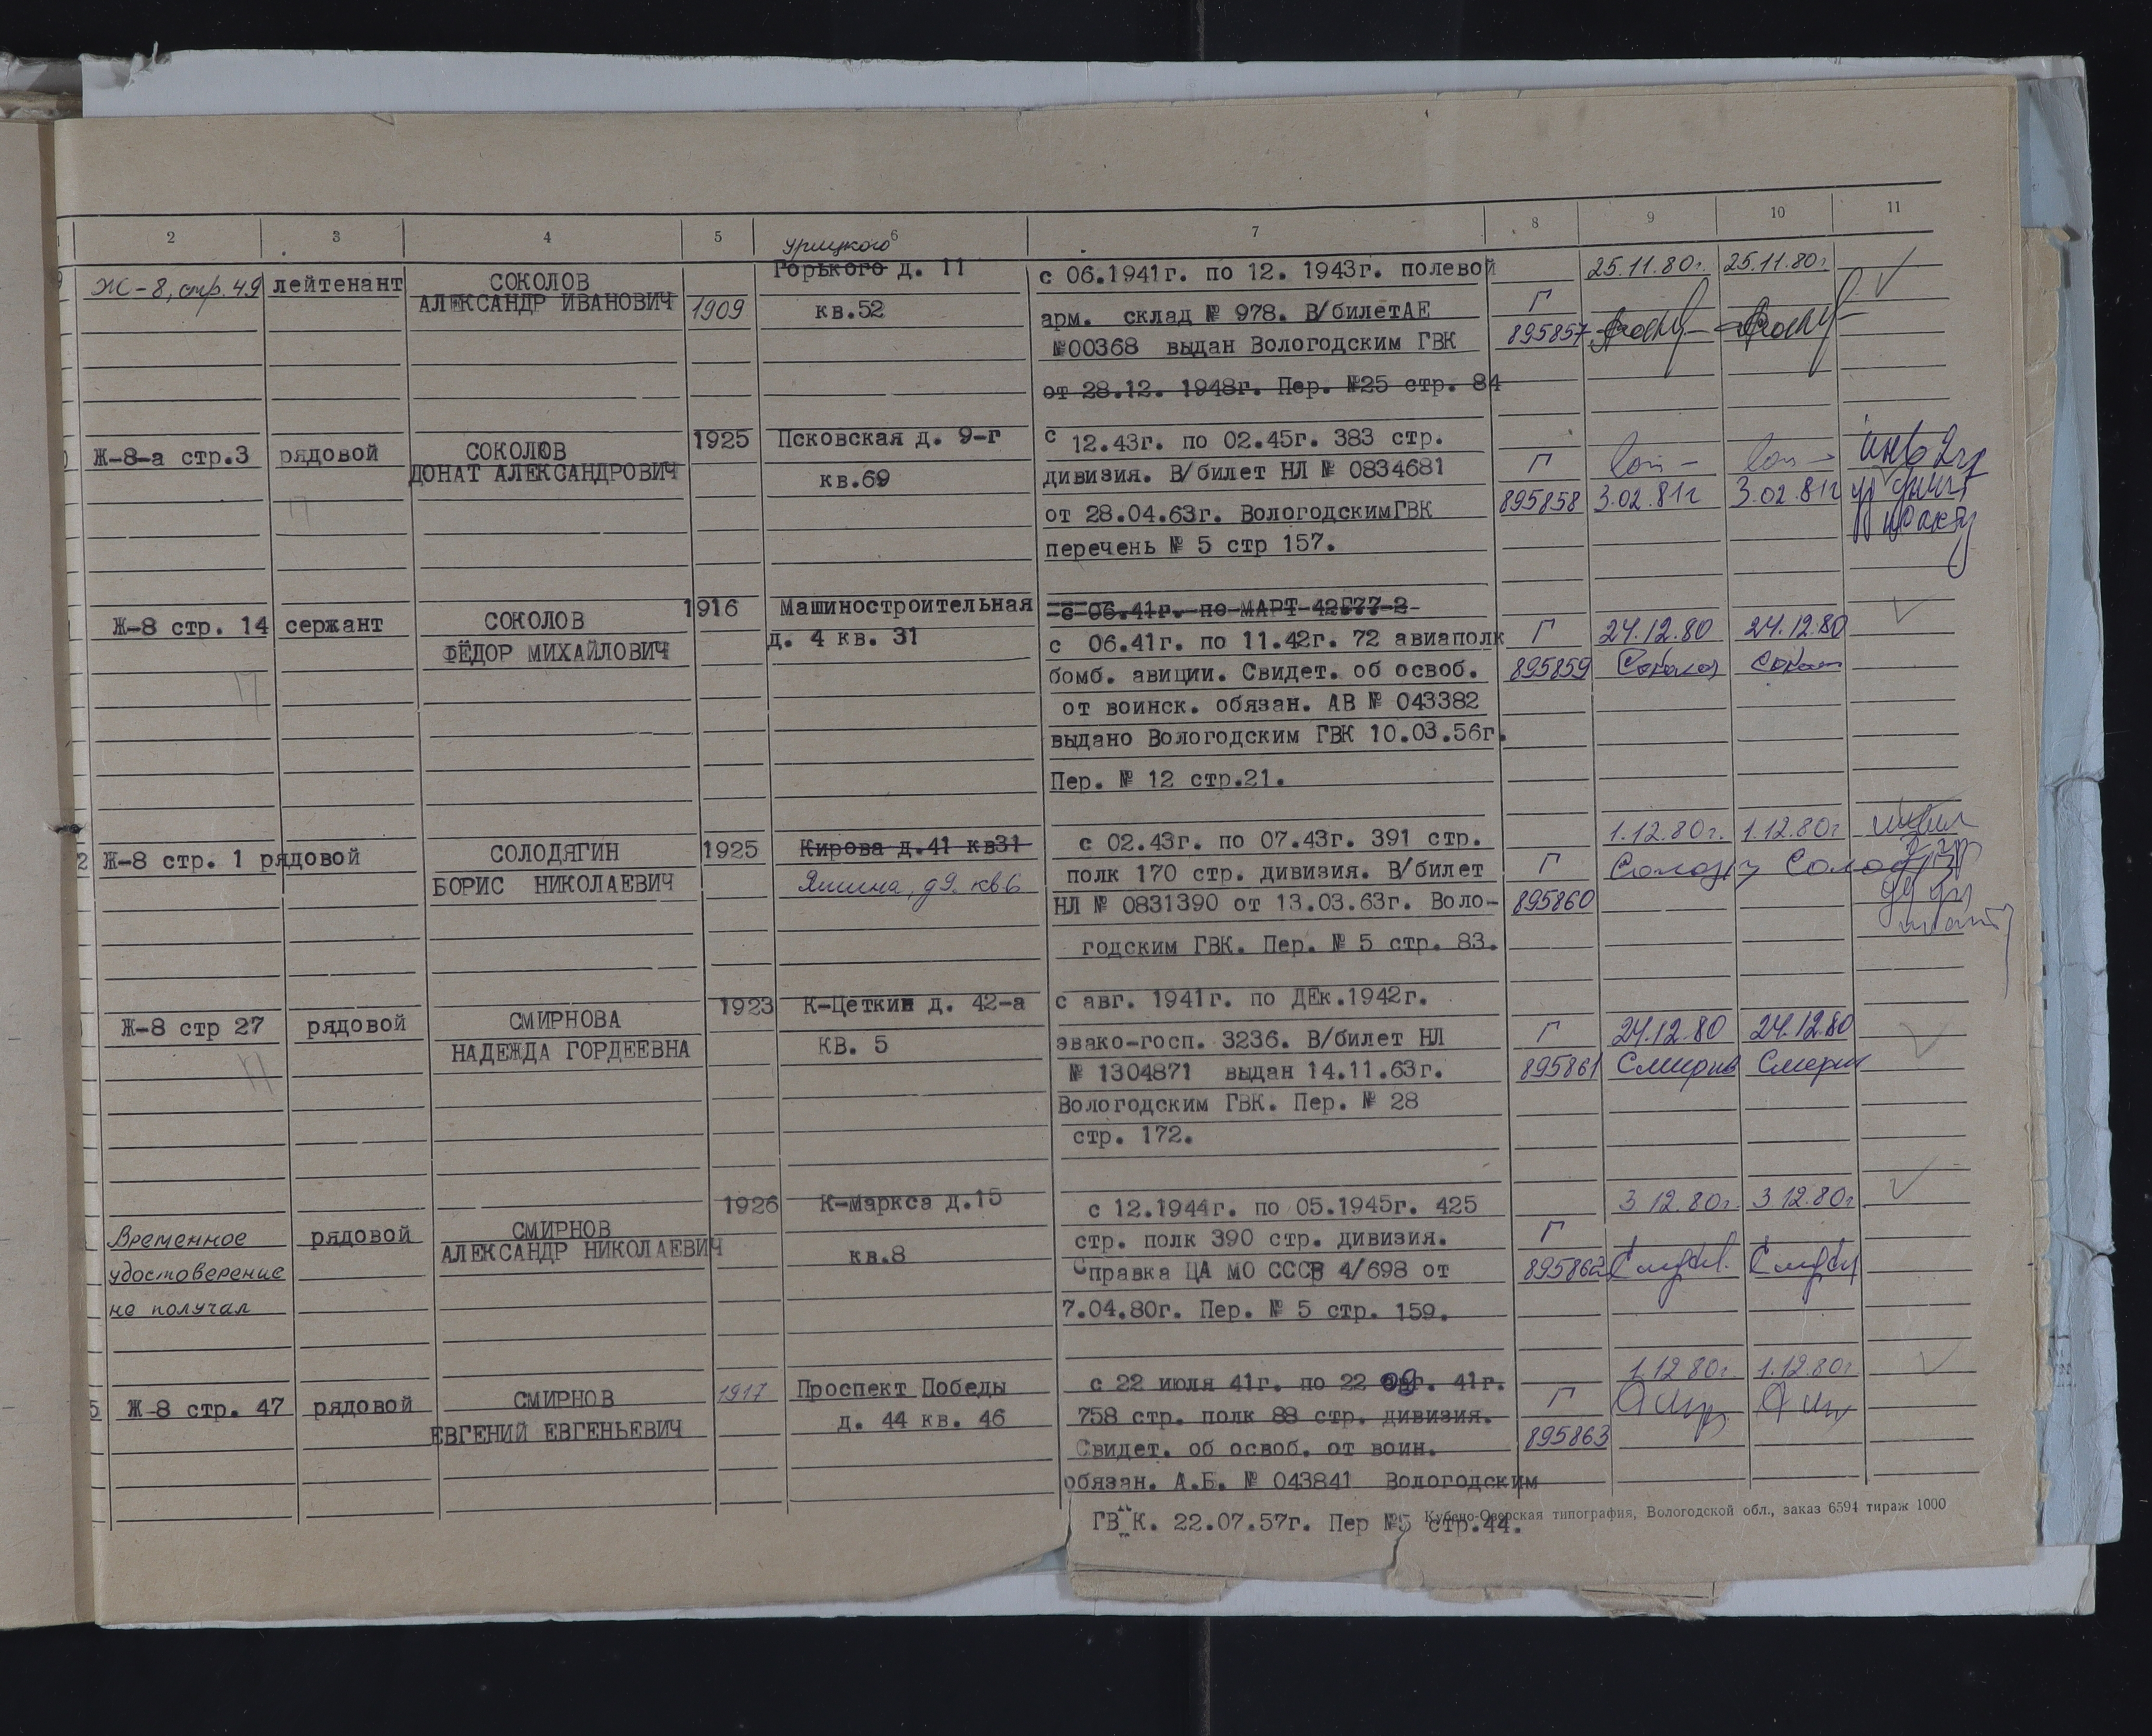 2 3 4 5 6 7 8 9 10 11
Ж-8, стр. 49 лейтенант СОКОЛОВ
АЛЕКСАНДР ИВАНОВИЧ 1909
урицкого
Горького д. 11
кв.52
с 06.1941г. по 12. 1943г. полевой
арм. склад № 978. В/билетАЕ
№00368 выдан Вологодским ГВК
от 28.12. 1948г. Пер. №25 стр. 84
Г
895857
25.11.80г. 25.11.80г
Ж-8-а стр.3 рядовой СОКОЛОВ
ДОНАТ АЛЕКСАНДРОВИЧ
1925 Псковская д. 9-г
кв.69
с 12.43г. по 02.45г. 383 стр.
дивизия. В/билет НЛ № 0834681
от 28.04.63г. ВологодскимГВК
перечень № 5 стр 157.
Г
895858
3.02.81г 3.02.81г
инв 2гр
Ж-8 стр. 14 сержант СОКОЛОВ
ФЁДОР МИХАЙЛОВИЧ
1916 Машиностроительная
д. 4 кв. 31
с 06.41г. по МАРТ 42Г77-2
с 06.41г. по 11.42г. 72 авиаполк
бомб. авиции. Свидет. об освоб.
от воинск. обязан. АВ № 043382
выдано Вологодским ГВК 10.03.56г.
Пер. № 12 стр.21.
Г
895859
24.12.80 24.12.80
2 Ж-8 стр. 1 рядовой СОЛОДЯГИН
БОРИС НИКОЛАЕВИЧ
1925 Кирова д.41 кв31
Яшина, д9. кв6
с 02.43г. по 07.43г. 391 стр.
полк 170 стр. дивизия. В/билет
НЛ № 0831390 от 13.03.63г. Воло-
годским ГВК. Пер. № 5 стр. 83.
Г
895860
1.12.80г. 1.12.80г
Ж-8 стр 27 рядовой СМИРНОВА
НАДЕЖДА ГОРДЕЕВНА
1923 К-Цеткин д. 42-а
КВ. 5
с авг. 1941г. по ДЕк.1942г.
эвако-госп. 3236. В/билет НЛ
№ 1304871 выдан 14.11.63г.
Вологодским ГВК. Пер. № 28
стр. 172.
Г
895861
24.12.80 24.12.80
Временное
удостоверение
не получал
рядовой СМИРНОВ
АЛЕКСАНДР НИКОЛАЕВИЧ
1926 К-Маркса д.15
кв.8
с 12.1944г. по 05.1945г. 425
стр. полк 390 стр. дивизия.
Справка ЦА МО СССР 4/698 от
7.04.80г. Пер. № 5 стр. 159.
Г
895862
3.12.80г. 3.12.80г
5 Ж-8 стр. 47 рядовой СМИРНОВ
ЕВГЕНИЙ ЕВГЕНЬЕВИЧ
1917 Проспект Победы
д. 44 кв. 46
с 22 июля 41г. по 22 09г. 41г.
758 стр. полк 88 стр. дивизия.
Свидет. об освоб. от воин.
обязан. А.Б. № 043841 Вологодским
ГВ"К. 22.07.57г. Пер №5 стр.44.
Г
895863
1.12.80г. 1.12.80г
Кубено-Озерская типография, Вологодской обл., заказ 6594 тираж 1000